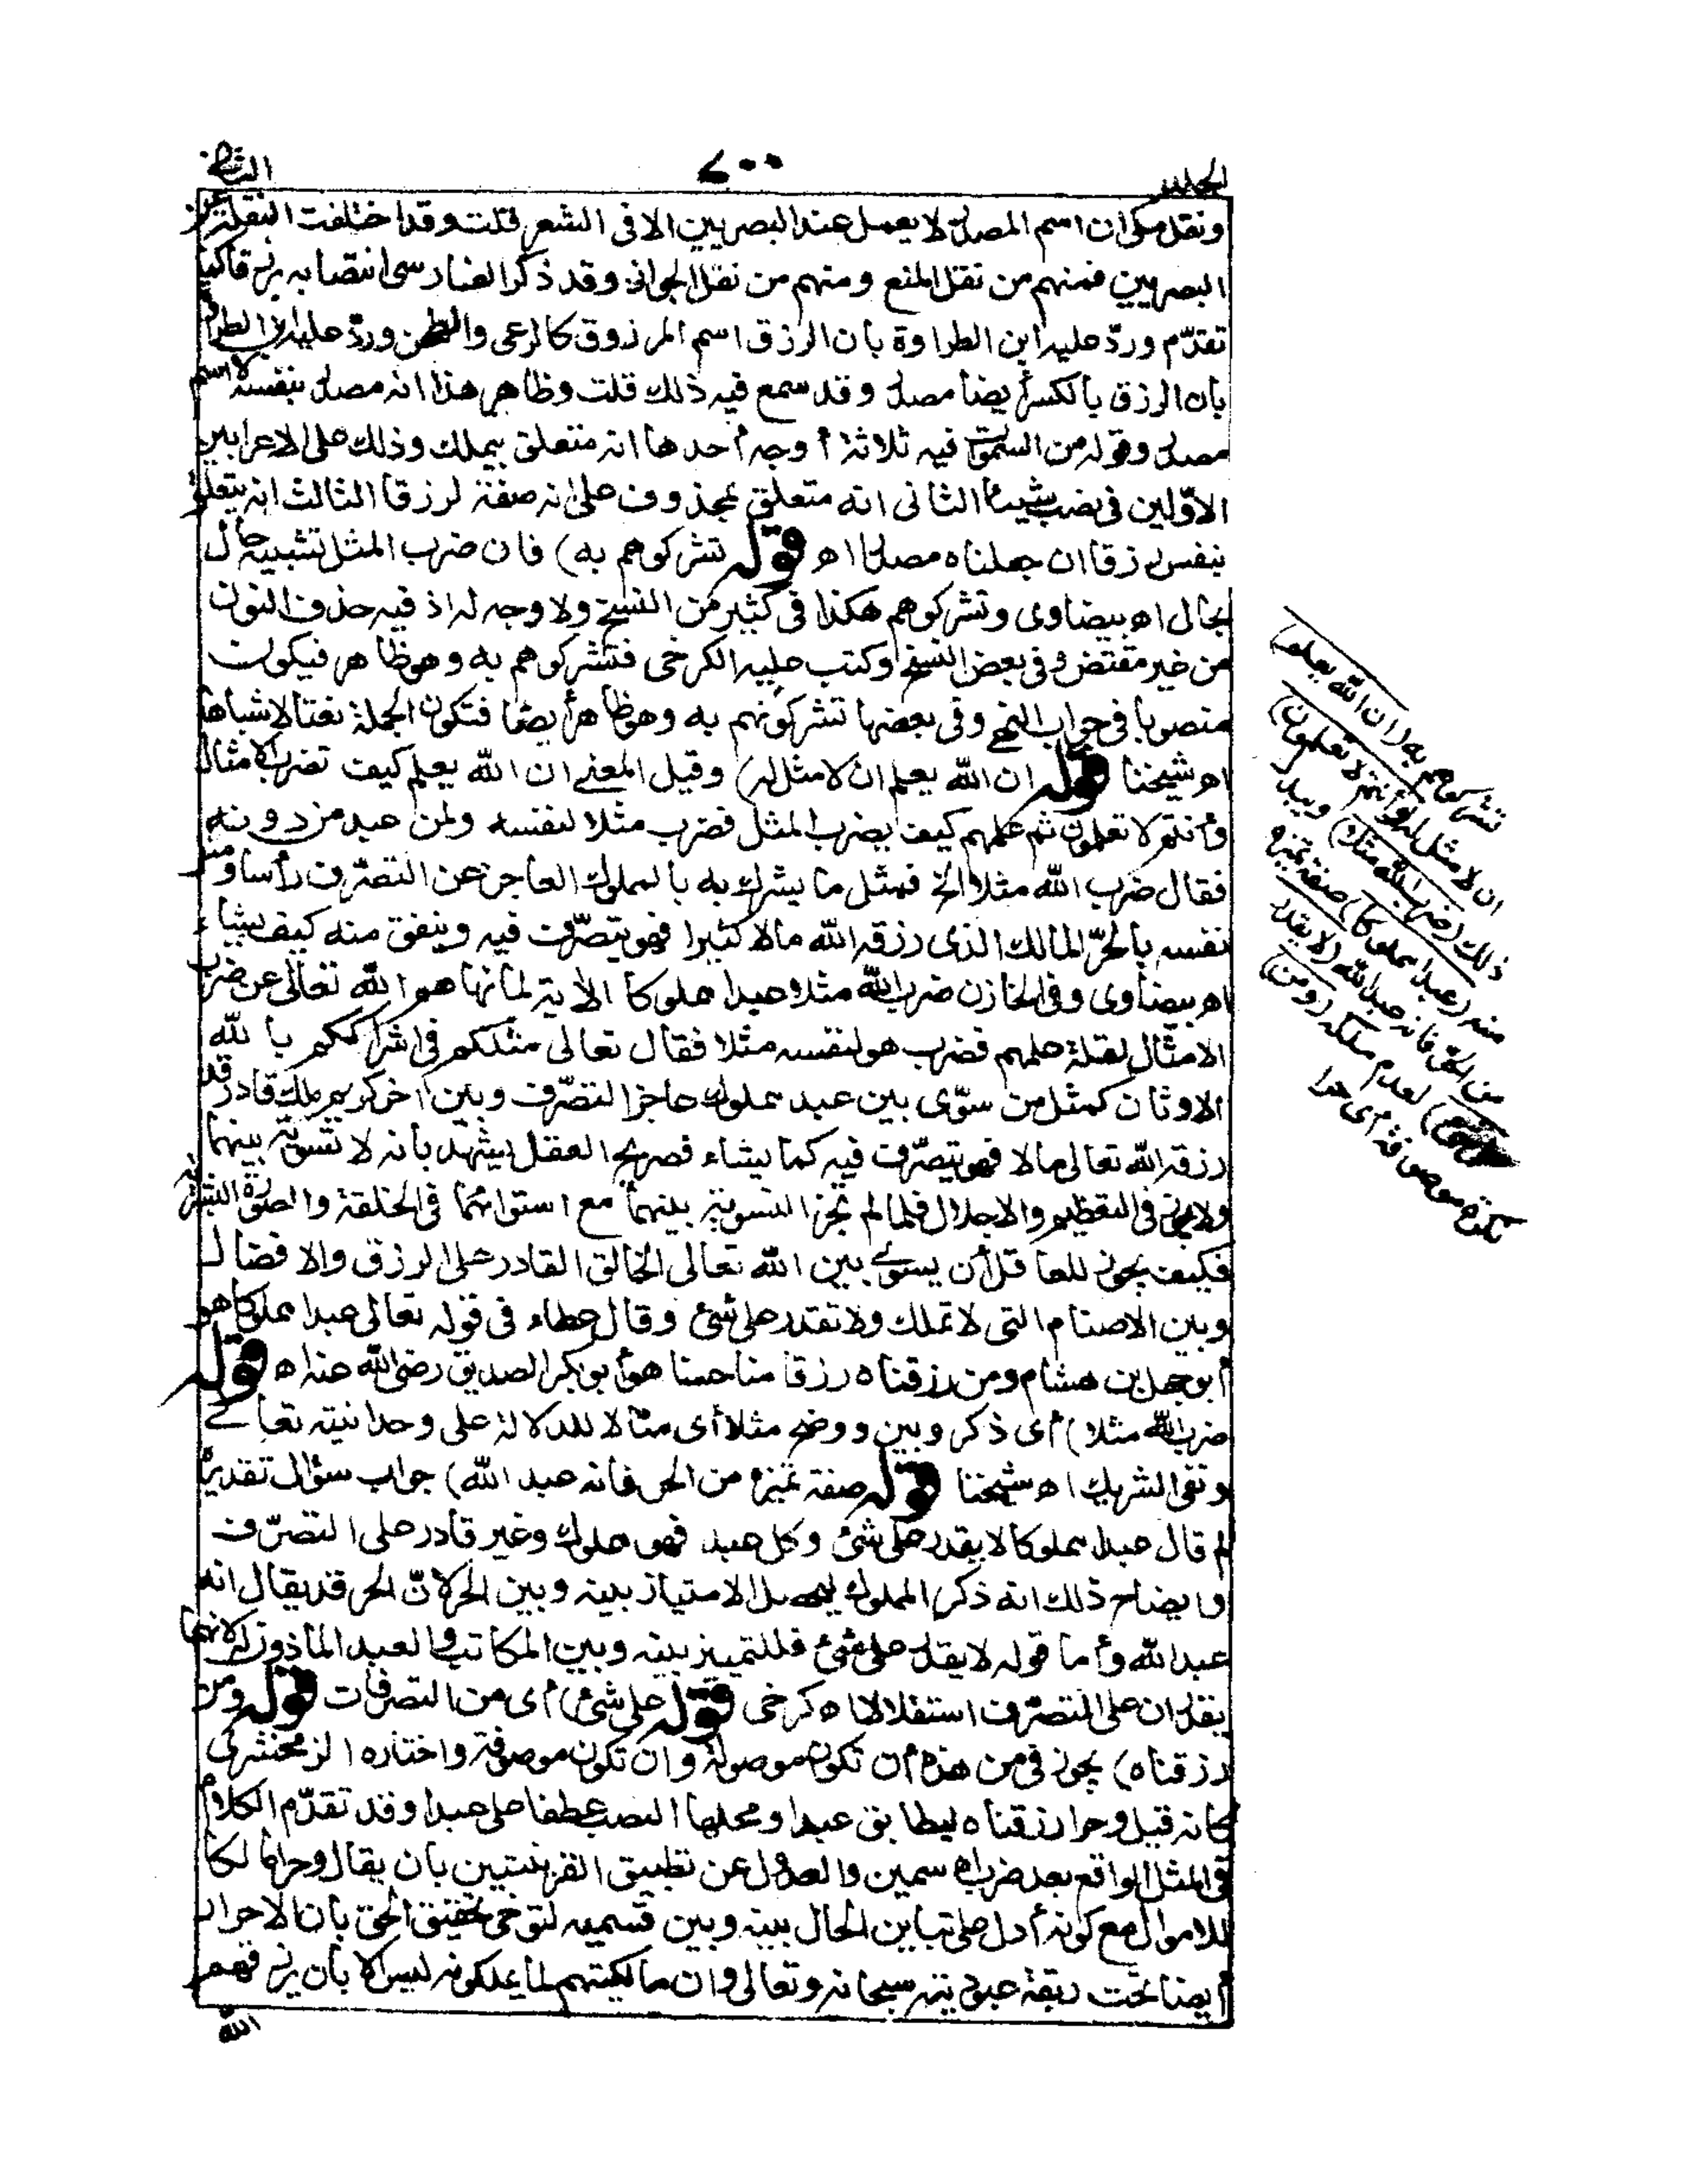 الجلد
٧٠٠
الثانى
ونقل مكى ان اسم المصدر لا يعمل عند البصريين الا فى الشعر قلت وقد اختلفت النقلة عن
البصريين فمنهم من نقل المنع ومنهم من نقل الجواز وقد ذكر الفارسى انتصابه برزقا كما
تقدّم وردّ عليه ابن الطراوة بأن الرزق اسم المرزوق كالرعى والطحن وردّ على ابن الطراوة
بان الرزق بالكسر أيضا مصدر وقد سمع فيه ذلك قلت وظاهر هذا انه مصدر بنفسه لا اسم
مصدر وقوله من السموات فيه ثلاثة أوجه أحدها انه متعلق بيملك وذلك على الاعرابين
الاوّلين فى نصب شيئا الثانى انه متعلق بمحذوف على انه صفة لرزقا الثالث انه يتعلق
بنفس رزقا ان جعلناه مصدرا اه قوله تشركوهم به) فان ضرب المثل تشبيه حال
بحال اه بيضاوى وتشركوهم هكذا فى كثير من النسخ ولا وجه له اذ فيه حذف النون
من غير مقتض وفى بعض النسخ وكتب عليه الكرخى فتشركوهم به وهو ظاهر فيكون
منصوبا فى جواب النهى وفى بعضها تشركونهم به وهو ظاهر أيضا فتكون الجملة نعتا لاشباها
اه شيخنا قوله ان الله يعلم ان لا مثل له) وقيل المعنى ان الله يعلم كيف تضرب الامثال
وأنتم لا تعلمون ثم علمهم كيف يضرب المثل فضرب مثلا لنفسه ولمن عبد من دونه
فقال ضرب الله مثلا الخ فمثل ما يشرك به بالمملوك العاجز عن التصرّف رأسا ومثل
نفسه بالحرّ المالك الذى رزقه الله مالا كثيرا فهو يتصرّف فيه وينفق منه كيف يشاء
اه بيضاوى وفى الخازن ضرب الله مثلا عبدا مملوكا الآية لما نهاهم الله تعالى عن ضرب
الامثال لقلة علمهم فضرب هو لنفسه مثلا فقال تعالى مثلكم فى اشراككم بالله
الاوثان كمثل من سوّى بين عبد مملوك عاجز التصرّف وبين آخر كريم ملك قادر قد
رزقه الله تعالى مالا فهو يتصرّف فيه كما يشاء فصريح العقل يشهد بأنه لا تسوية بينهما
ولا يجوز فى التعظيم والاجلال فلما لم تجز التسوية بينهما مع استوائهما فى الخلقة والصورة البشرية
فكيف يجوز للعاقل أن يسوى بين الله تعالى الخالق القادر على الرزق والافضال
وبين الاصنام التى لا تملك ولا تقدر على شئ وقال عطاء فى قوله تعالى عبدا مملوكا هو
أبو جهل بن هشام ومن رزقناه رزقا منا حسنا هو أبو بكر الصديق رضى الله عنه اه قوله
ضرب الله مثلا) أى ذكر وبين ووضح مثلا أى مثالا للدلالة على وحدانيته تعالى
ونفى الشريك اه شيخنا قوله صفة تميزه من الحر فانه عبد الله) جواب سؤال تقديره
لم قال عبدا مملوكا لا يقدر على شئ وكل عبد فهو مملوك وغير قادر على التصرّف
وايضاح ذلك انه ذكر المملوك ليحصل الامتياز بينه وبين الحر لانّ الحر قد يقال انه
عبد الله وأما قوله لا يقدر على شئ فللتمييز بينه وبين المكاتب والعبد المأذون له لانهما
يقدران على التصرّف استقلالا اه كرخى قوله على شئ) أى من التصرفات قوله ومن
رزقناه) يجوز فى من هذه أن تكون موصولة وان تكون موصوفة واختاره الزمخشرى
كانه قيل وحرا رزقناه ليطابق عبدا ومحلها النصب عطفا على عبدا وقد تقدّم الكلام
فى المثل الواقع بعد ضرب اه سمين والعدول عن تطبيق القرينتين بان يقال وحرا مالكا
للاموال مع كونه أدل على تباين الحال بينه وبين قسيمه لتوخى تحقيق الحق بان الاحرار
أيضا تحت ربقة عبوديته سبحانه وتعالى وان مالكيتهم لما يملكونه ليس الا بأن يرزقهم
الله
تشركوهم به (ان الله يعلم)
ان لا مثل له (وأنتم لا تعلمون)
ذلك (ضرب الله مثلا) ويبدل
منه (عبدا مملوكا) صفة تميزه
من الحر فانه عبد الله (لا يقدر
على شئ) لعدم ملكه (ومن)
نكرة موصوفة أى حرا